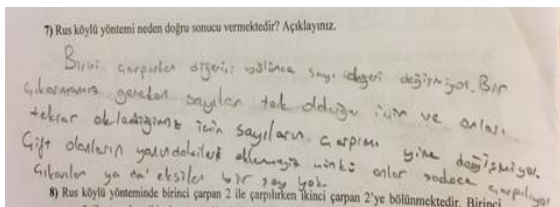 7) Rus köylü yöntemi neden doğru sonucu vermektedir? Açıklayınız.
Birini çarparken diğerini bölünce sayı değeri değişmiyor. Bir
çıkarmamız gereken sayılar tek olduğu için ve onları
tekrar eklediğimiz için sayıların çarpımı yine değişmiyor.
Çift olanların yanındakileri eklemeyiz çünkü onlar sadece çarpılıyor
Çıkarılan ya da eksilen bir şey yok.
8) Rus köylü yönteminde birinci çarpan 2 ile çarpılırken ikinci çarpan 2'ye bölünmektedir. Birinci